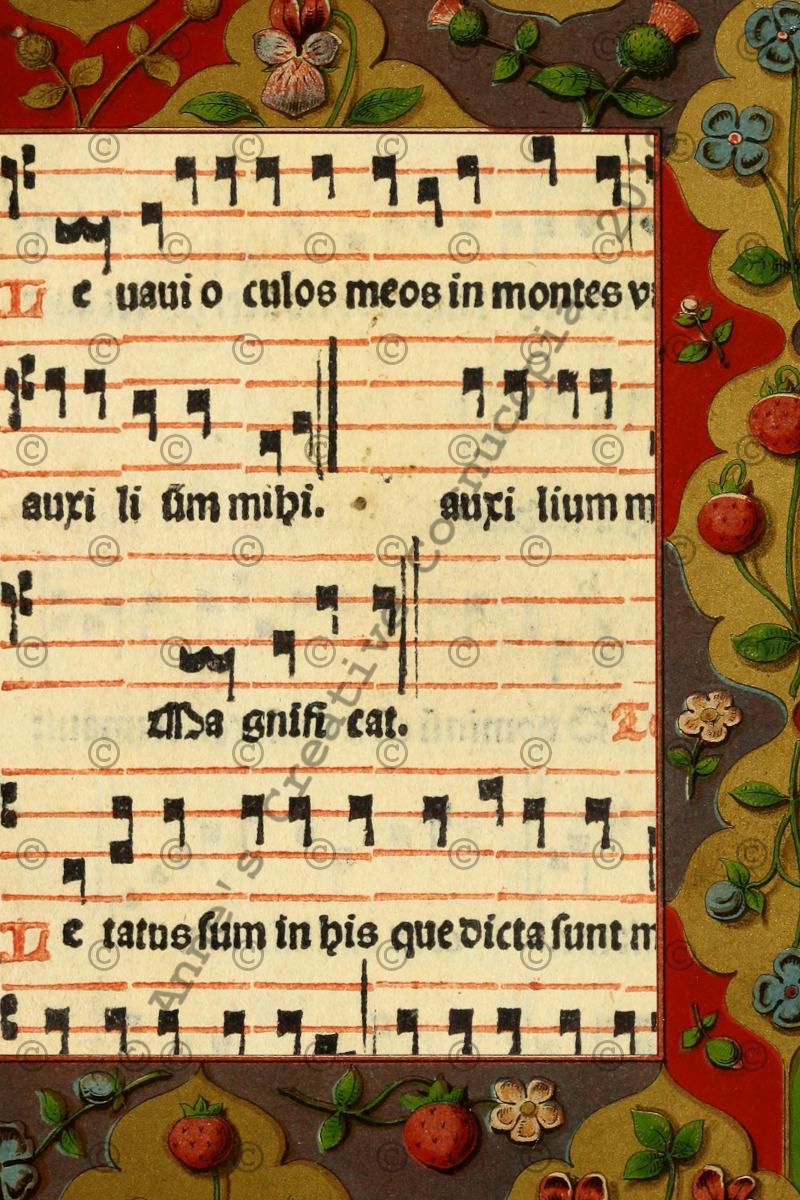 Le uaui o culos meos in montes v
auxi li ūm mihi. auxi lium m
Ma gnifi cat.
Le tatus ſum in his que dicta ſunt m
Anne's Creative Cornucopia 2019